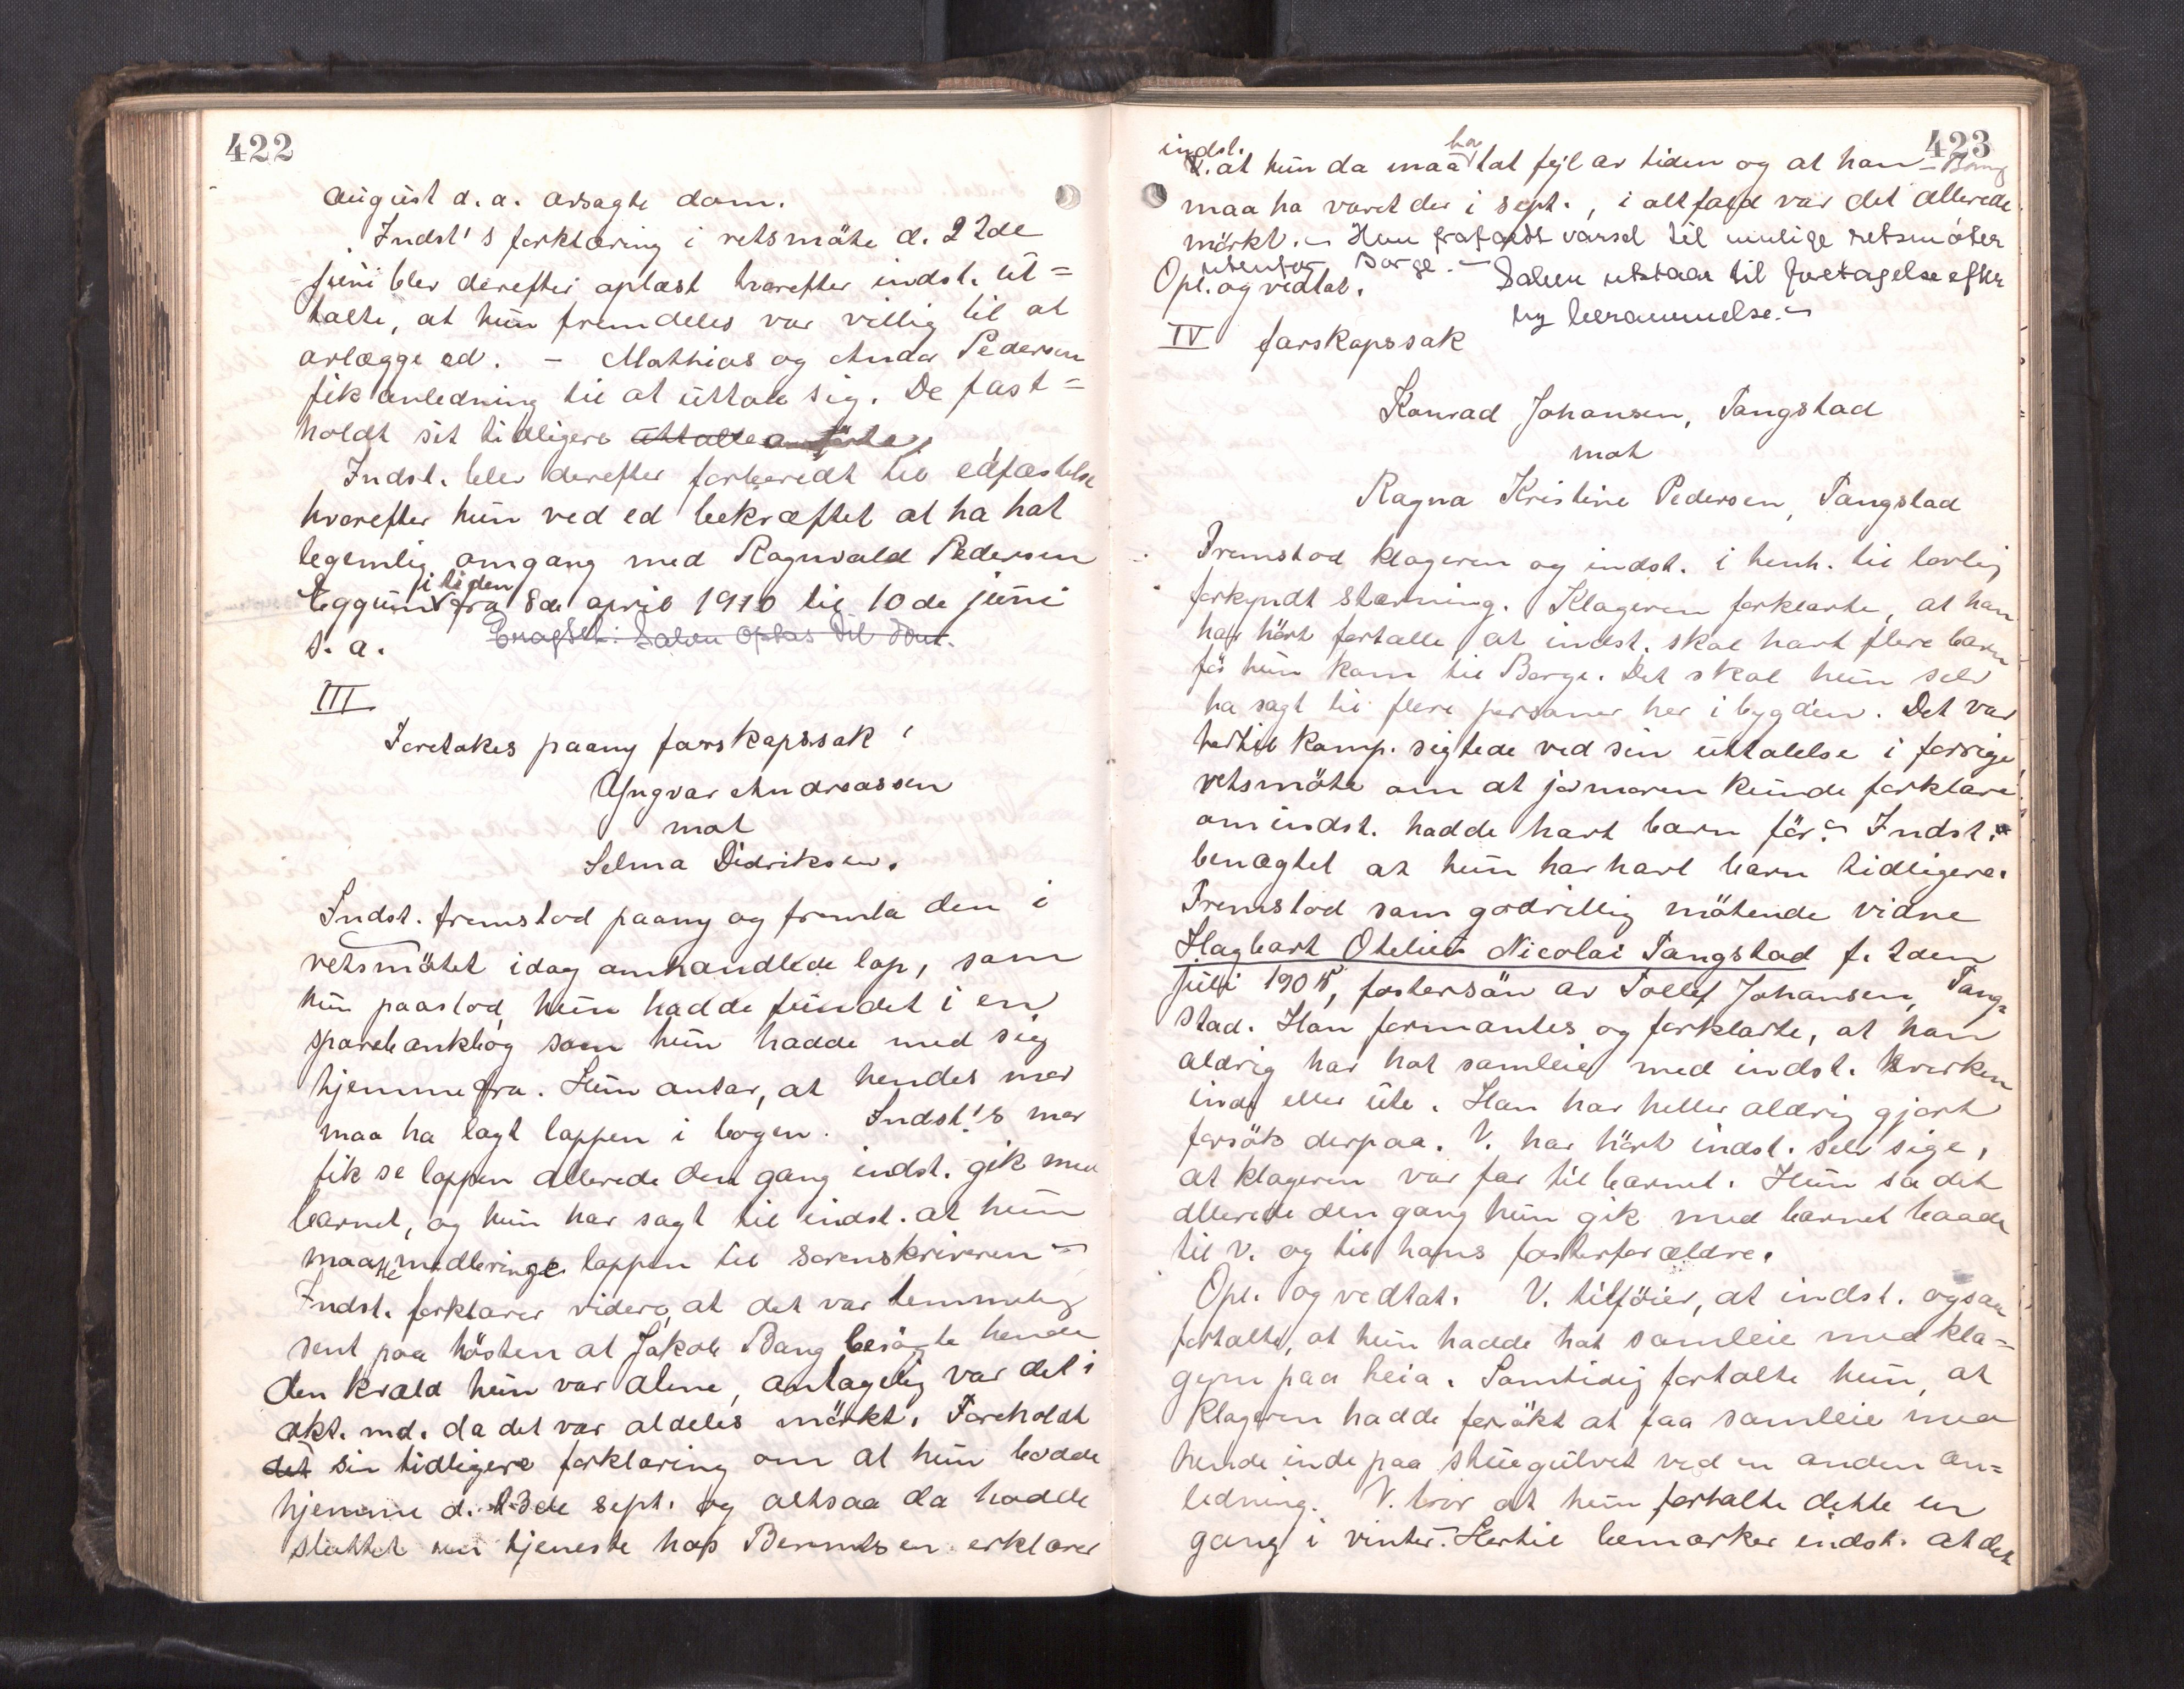 422
august d. a. avsagte dom.
Indst's forklæring i retsmöte d. 22de
juni blev derefter oplæst hvorefter indst. ut=
talte, at hun fremdeles var villig til at
avlægge ed. - Mathias og Anda Pedersen
fik anledning til at uttale sig. De fast=
holdt sit tidligere uttalte anförte.
Indst. blev derefter forberedt til edfæstelse
hvorefter hun ved ed bekræftet at ha hat
legemlig omgang med Ragnvald Pedersen
Eggum i tiden fra 8de april 1910 til 10de juni
s. a. Saken optas til dom.
III
Foretokes paany farskapssak:
Yngvar Andreassen
mot
Selma Didriksen.
Indst. fremstod paany og fremla den i
retsmötet idag omhandlede lap, som
hun paastod hun hadde fundet i en
sparebankbog som hun hadde med sig
hjemmefra. Hun antar, at hendes mor
maa ha lagt lappen i bogen. Indst.'s mor
fik se lappen allerede den gang indst. gik med
barnet, og hun har sagt til indst. at hun
maatte medbringe lappen til sorenskriveren -
Indst. forklarer videre, at det var temmelig
sent paa hösten at Jakob Bang besögte hende
den kvæld hun var alene, antagelig var det i
okt. md. da det var aldeles mörkt. Foreholdt
det sin tidligere forklaring om at hun bodde
hjemme d. 23de sept. og altsaa da hadde
sluttet sin tjeneste hos Berentsen erklærer
423
indst. at hun da maa ha tat fejl av tiden og at han - Bang
maa ha været der i sept., i altfald var det allerede
mörkt. - Hun frafaldt varsel til mulige retsmöter
utenfor Borge. - Saken utstaar til foretagelse efter
Opl. og vedtat.
ny berammelse. -
IV farskapssak
Konrad Johansen, Tangstad
mot
Ragna Kristine Pedersen, Tangstad
Fremstod klageren og indst. i henh. til lovlig
forkyndt stævning. Klageren forklarte, at han
har hört fortalle at indst. skal havt flere barn
för hun kom til Borge. Det skal hun selv
ha sagt til flere personer her i bygden. Det var
hertil komp. sigtede ved sin uttalelse i forrige
retsmöte om at jormoren kunde forklare
om indst. hadde havt barn för. - Indst.
benægtet at hun har havt barn tidligere.
Fremstod som godvillig mötende vidne
Hagbart Otelius Nicolai Tangstad f. 2den
juli 1905, fostersön av Tollef Johansen, Tang=
stad. Han formantes og forklarte, at han
aldrig har hat samleie med indst. hverken
inde eller ute. Han har heller aldrig gjort
forsök derpaa. V. har hört indst. selv sige,
at klageren var far til barnet. Hun sa det
allerede den gang hun gik med barnet baade
til V. og til hans fosterforældre.
Opl. og vedtat. V. tilföier, at indst. ogsaa
fortalte, at hun hadde hat samleie med kla=
geren paa heia. Samtidig fortalte hun, at
klageren hadde forsökt at faa samleie med
hende inde paa stuegulvet ved en anden an=
ledning. V. tror at hun fortalte dette en
gang i vinter. Hertil bemærker indst. at det